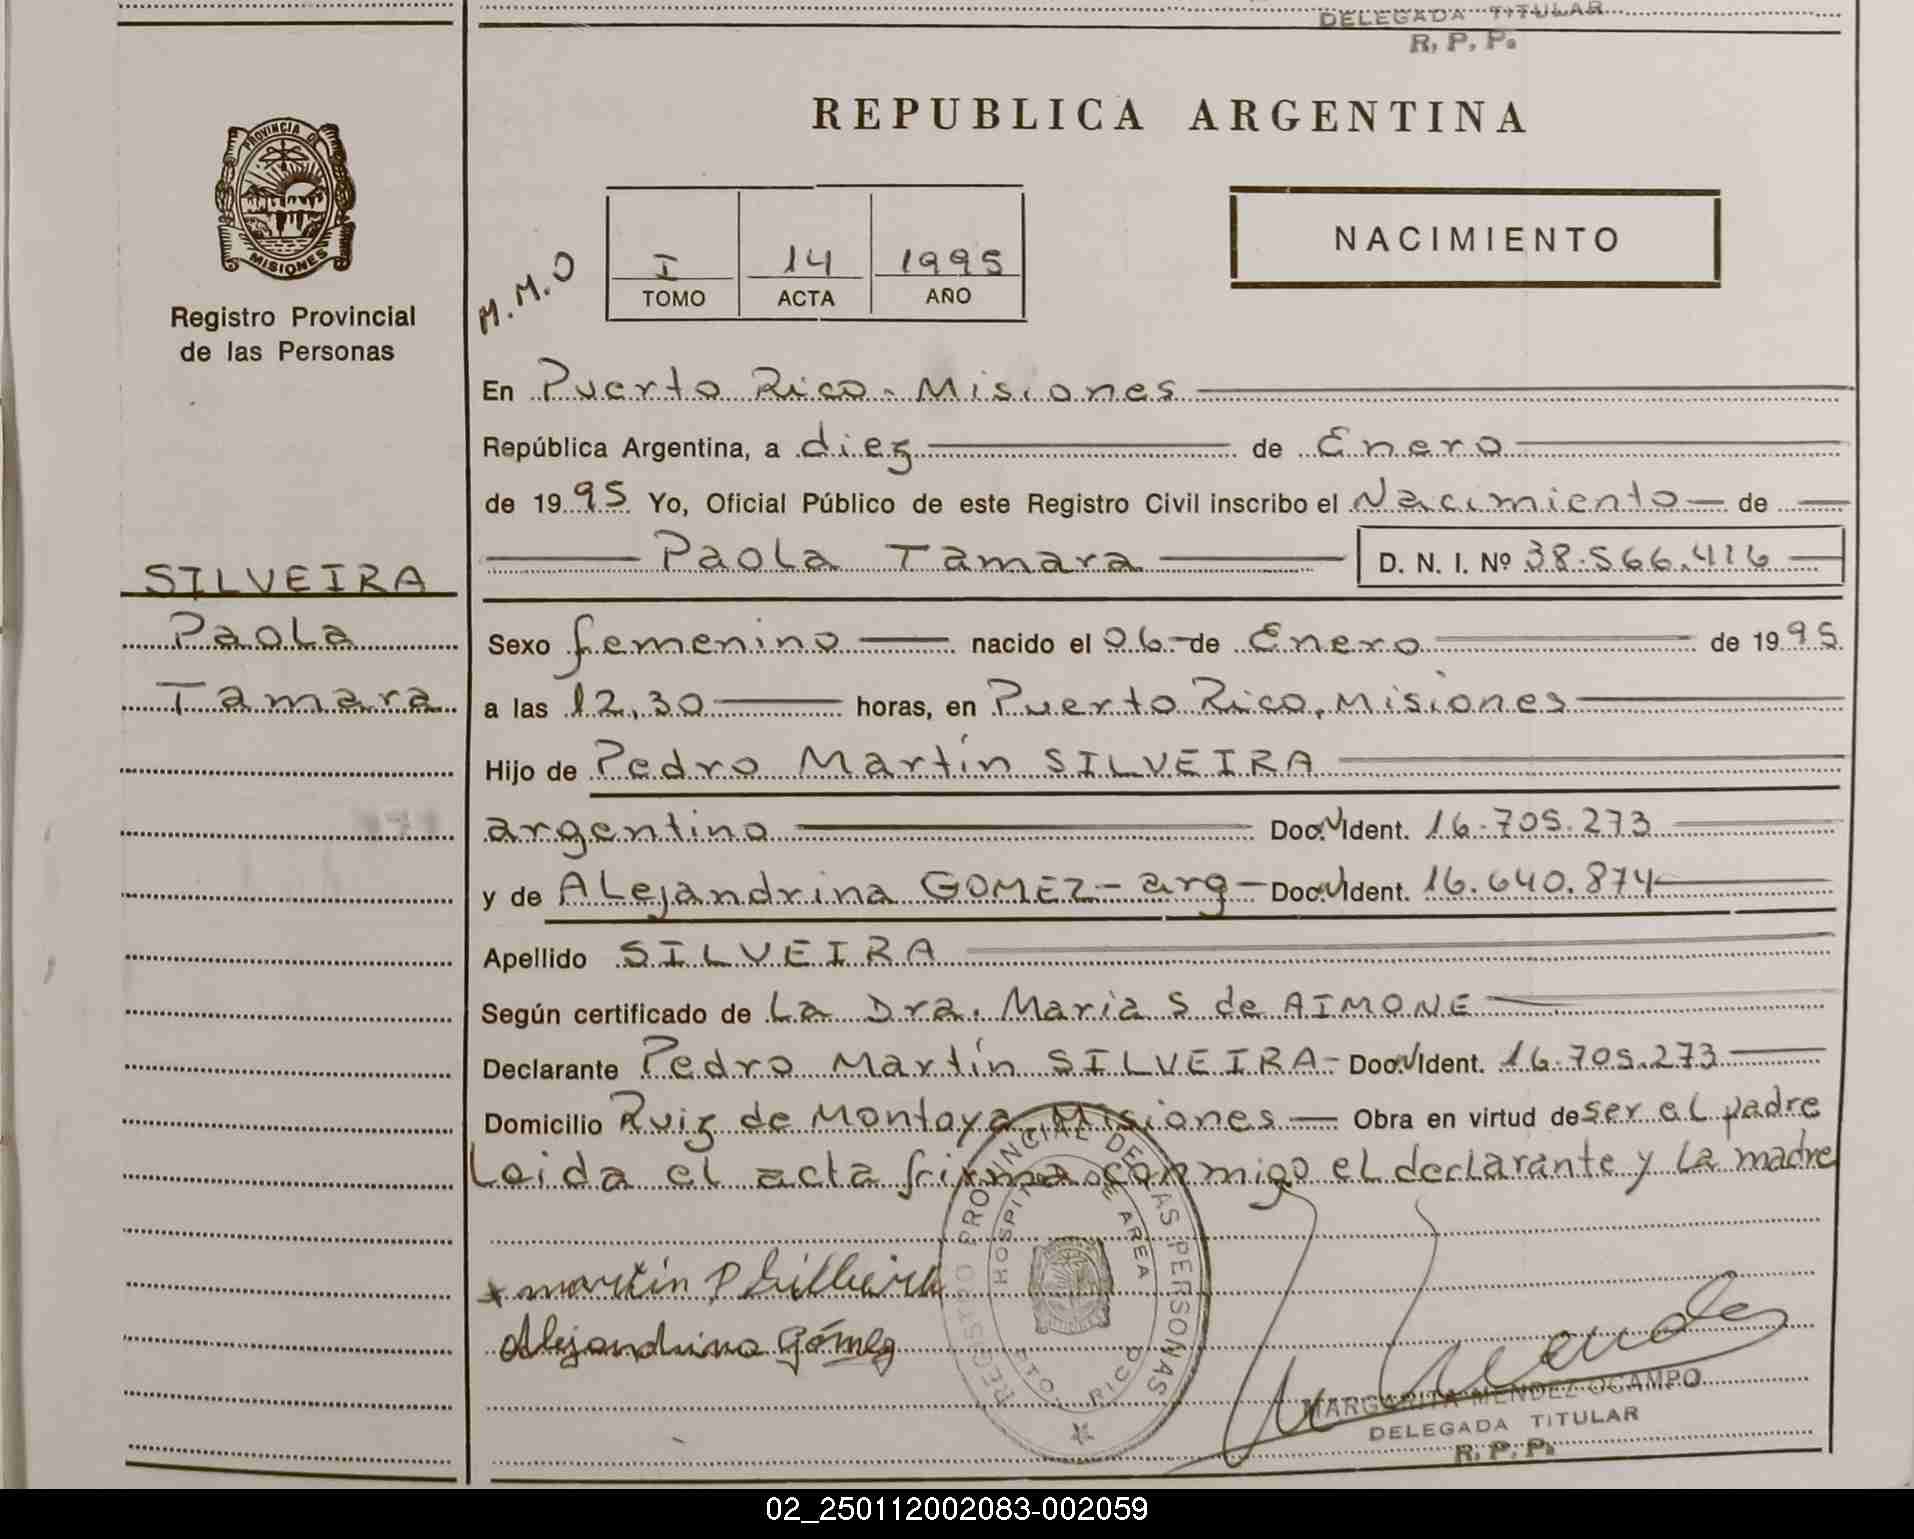 DELEGADA TITULAR
R. P. P.
REPUBLICA ARGENTINA
PROVINCIA DE
MISIONES
Registro Provincial
de las Personas
M.M.O
I 14 1995
TOMO ACTA AÑO
NACIMIENTO
En Puerto Rico - Misiones
República Argentina, a diez de Enero
de 1995 Yo, Oficial Público de este Registro Civil inscribo el Nacimiento de
Paola Tamara D. N. I. Nº 38.566.416
SILVEIRA
Paola
Tamara
Sexo femenino nacido el 06 de Enero de 1995
a las 12,30 horas, en Puerto Rico, Misiones
Hijo de Pedro Martín SILVEIRA
argentino Doc. Ident. 16.705.273
y de Alejandrina GOMEZ - arg - Doc. Ident. 16.640.874
Apellido SILVEIRA
Según certificado de La Dra. Maria S de AIMONE
Declarante Pedro Martín SILVEIRA - Doc. Ident. 16.705.273
Domicilio Ruiz de Montoya Misiones — Obra en virtud de ser el padre
Leida el acta firma conmigo el declarante y la madre
REGISTRO PROVINCIAL DE LAS PERSONAS
HOSPITAL DE AREA
PTO. RICO
martín P Silbeira
Alejandrina Gómez
MARGARITA MENDEZ OCAMPO
DELEGADA TITULAR
R. P. P.
02_250112002083-002059